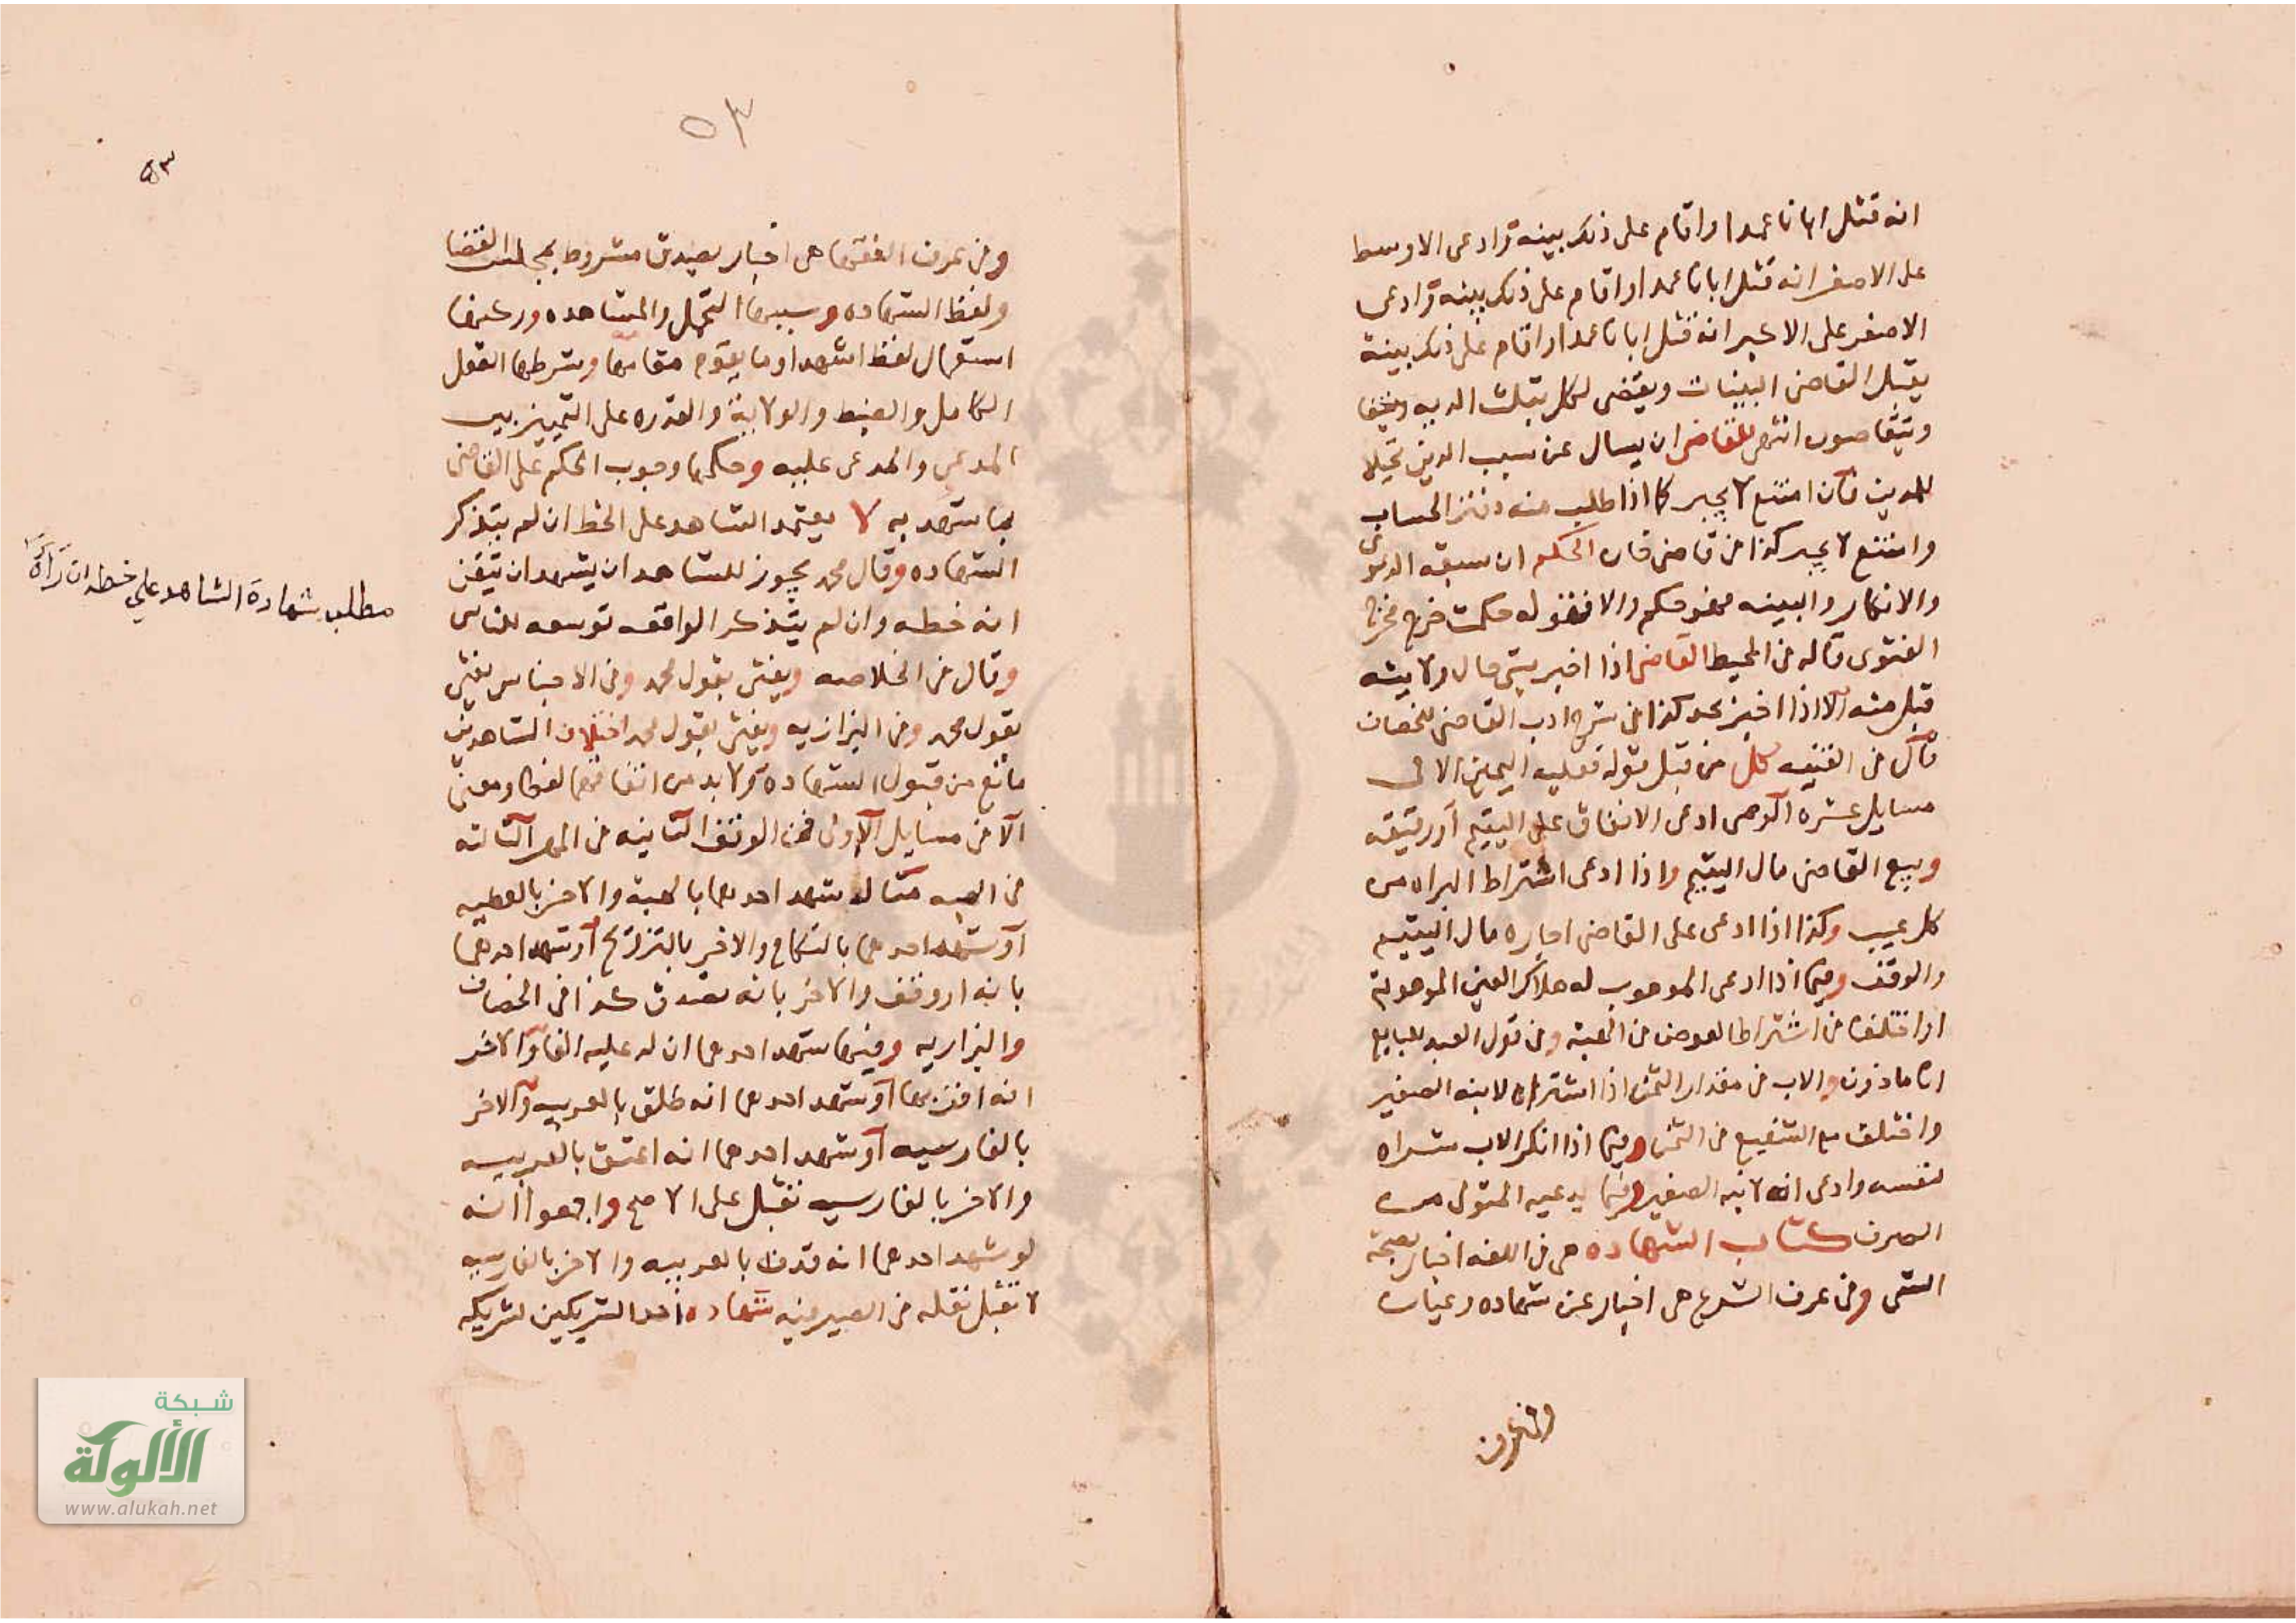 انه قتل ابانا عمدا واقام على ذلك بينه وادعى الاوسط
على الاصغر انه قتل ابانا عمدا واقام على ذلك بينه وادعى
الاصغر على الاكبر انه قتل ابانا عمدا واقام على ذلك بينة
يقبل القاضى البينات ويقضى لكل بثلث الديه
ويتقاصون انتهى للقاضى ان يسال عن سبب الدين
للمدين فان امتنع لا يجبر كما اذا طلب منه دفتر الحساب
وامتنع لا يجبر كذا فى قاضى خان الحكم ان سبقه الدعوى
والانكار والبينه فهو حكم والا فقوله حكمت خرج مخرج
الفتوى قاله فى المحيط القاضى اذا اخبر بشى حال ولايته
قبل منه الا اذا اخبر بحد كذا فى شرح ادب القاضى للخصاف
قال فى القنيه كل من قبل قوله فعليه اليمين الا فى
مسايل عشره الوصى ادعى الانفاق على اليتيم او رقيقه
وبيع القاضى مال اليتيم واذا ادعى اشتراط البراه من
كل عيب وكذا اذا ادعى على القاضى اجاره مال اليتيم
والوقف وفيما اذا ادعى الموهوب له هلاك العين الموهوبة
او اختلفا فى اشتراط العوض فى الهبة وفى قول العبد للبايع
انا ماذون والاب فى مقدار الثمن اذا اشتراه لابنه الصغير
واختلف مع الشفيع فى الثمن وفيما اذا انكر الاب شراه
لنفسه وادعى انه لابنه الصغير وفيما يدعيه المتولى من
الصرف كتاب الشهاده هى فى اللغه اخبار بصحة
الشى وفى عرف الشرع هى اخبار عن شهاده وعيان
وفى عرف
٥٣
٥٣
وفى عرف الفقها هى اخبار بصدق مشروط بمجلس القضا
ولفظ الشهاده وسببها التحمل والمشاهده وركنها
استعمال لفظ اشهد او ما يقوم مقامها وشرطها العقل
الكامل والضبط والولاية والقدره على التمييز بين
المدعى والمدعى عليه وحكمها وجوب الحكم على القاضى
بما شهد به لا يعتمد الشاهد على الخط ان لم يتذكر
الشهاده وقال محمد يجوز للشاهد ان يشهد ان تيقن
انه خطه وان لم يتذكر الواقعه توسعه للناس
وقال فى الخلاصه ويفتى بقول محمد وفى الاجناس يفتى
بقول محمد وفى البزازيه ويفتى بقول محمد اختلاف الشاهدين
مانع من قبول الشهاده ولا بد من اتفاقهما لفظا ومعنى
الا فى مسايل الاولى فى الوقف الثانيه فى المهر الثالثه
فى الهبه مثاله شهد احدهما بالهبة والاخر بالعطيه
او شهد احدهما بالنكاح والاخر بالتزويج او شهد احدهما
بانه اوقف والاخر بانه تصدق كذا فى الخصاف
والبزازيه وفيها شهد احدهما ان له عليه الفا والاخر
انه اقر بها او شهد احدهما انه طلق بالعربيه والاخر
بالفارسيه او شهد احدهما انه اعتق بالعربيه
والاخر بالفارسيه تقبل على الاصح واجمعوا انه
لو شهد احدهما انه قذف بالعربيه والاخر بالفارسيه
لا تقبل نقله فى الصيرفيه شهاده احد الشريكين لشريكه
مطلب شهادة الشاهد على خطه ان رآه
شبكة
الألوكة
www.alukah.net